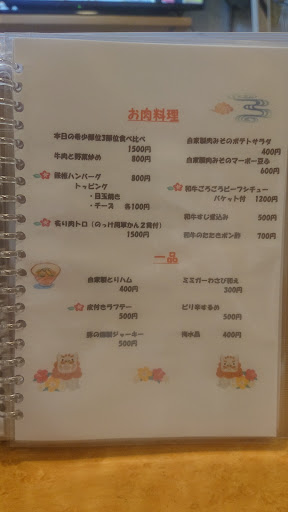 お肉料理
本日の希少部位3部位食べ比べ
1500円
牛肉と野菜炒め 800円
ハンバーグ 800円
トッピング
・目玉焼き
・チーズ 各100円
炙り肉トロ（のっけ用軍かん2貫付）
1500円
自家製肉みそのポテトサラダ
400円
自家製肉みそのマーボー豆腐
600円
和牛ごろごろビーフシチュー
バケット付 1200円
和牛すじ煮込み 500円
和牛のたたきポン酢 700円
一品
自家製とりハム
400円
皮付きラフテー
500円
豚の燻製ジャーキー
500円
ミミガーわさび和え
300円
ピリ辛するめ
500円
梅水晶 400円